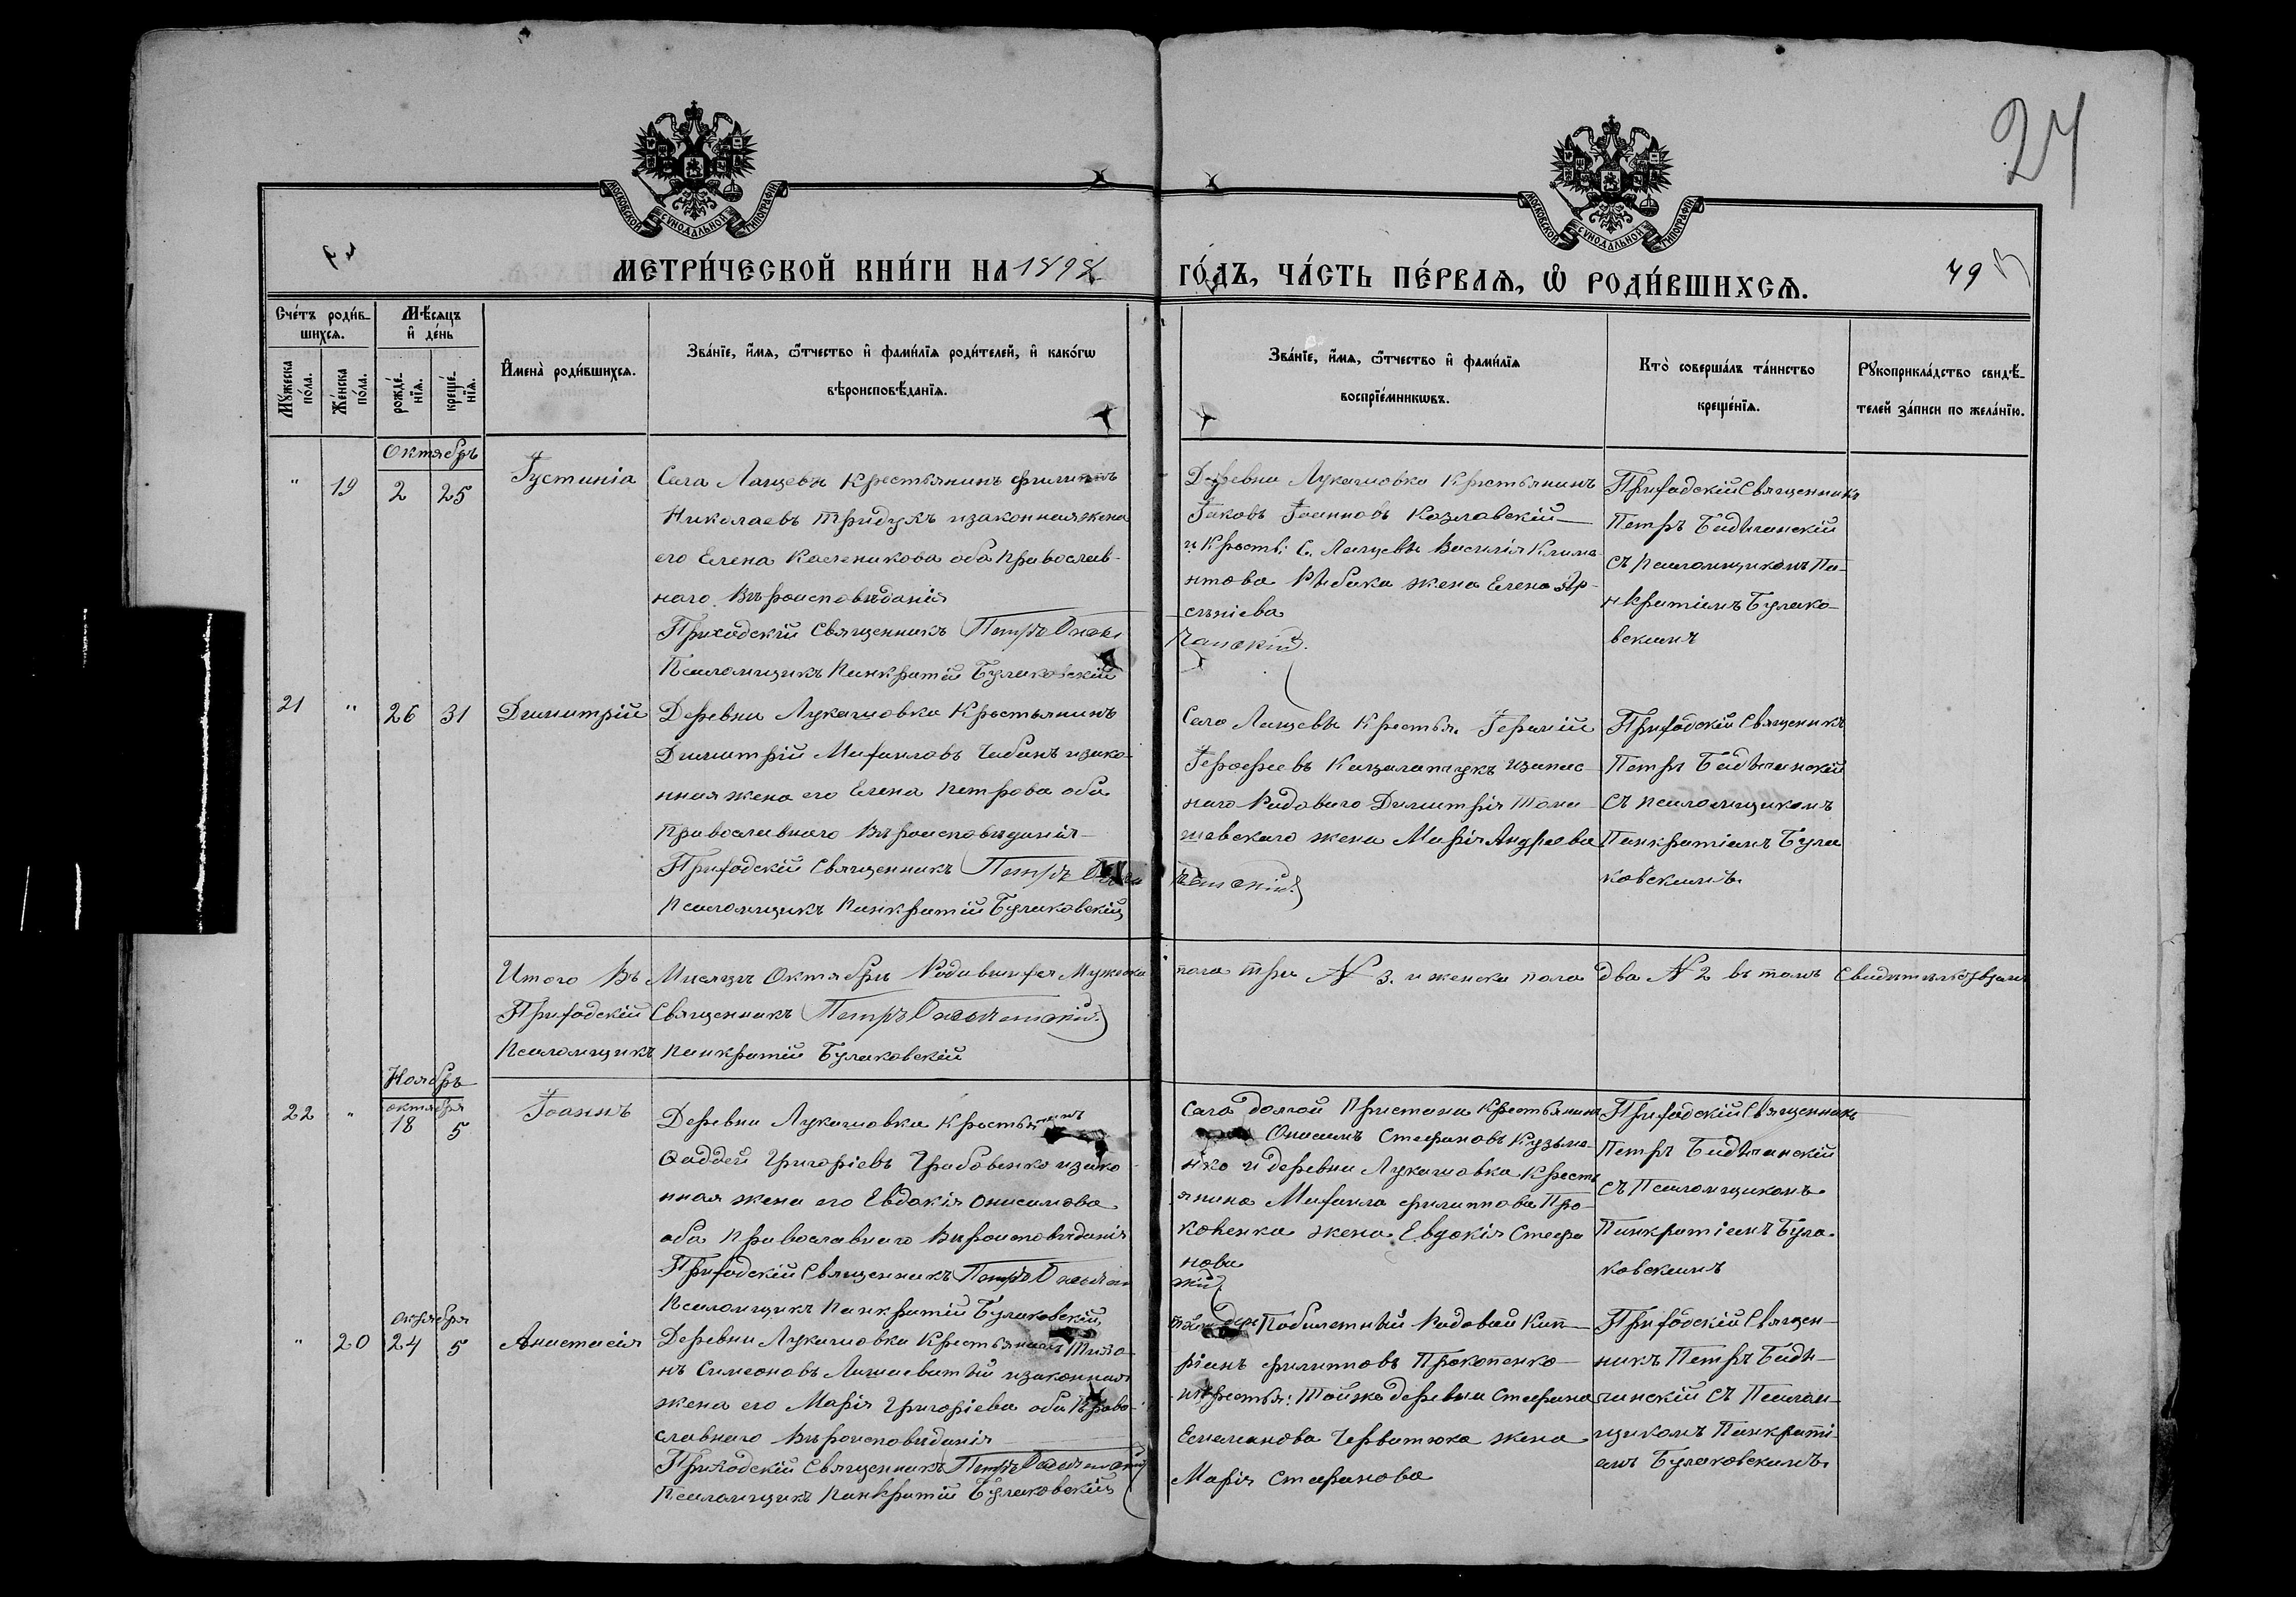 24
МОСКОВСКОЙ СУНОДАЛЬНОЙ ТИПОГРАФІИ
МОСКОВСКОЙ СУНОДАЛЬНОЙ ТИПОГРАФІИ
МЕТРИ́ЧЕСКОЙ КНИ́ГИ НА 1898 ГО́ДЪ, ЧА́СТЬ ПЕ́РВАЯ, Ѡ РОДИ́ВШИХСЯ.
49
Сче́тъ роди́в-
шихся.
Мѣ́сяцъ
и҆ де́нь
И҆мена̀ роди́вшихся.
Зва́нїе, и҆́мя, ѻ҆́тчество и҆ фами́лїя роди́телей, и҆ како́гѡ
вѣроисповѣ́данїя.
Зва́нїе, и҆́мя, ѻ҆́тчество и҆ фами́лїя
воспрїе́мникѡвъ.
Кто̀ соверша́лъ та́инство
креще́нїя.
Рꙋкоприкла́дство свидѣ́-
телей за́писи по жела́нїю.
Мꙋ́жеска по́ла.
Же́нска по́ла.
рожде́-
нїя.
креще́-
нїя.
Октябрь
" 19 2 25 Іустинія
Села Лащевъ Крестьянинъ Филиппъ
Николаевъ Тридукъ изаконная жена
его Елена Каленикова оба Православ-
наго Вѣроисповѣданія
Приходскій Священникъ Петръ
Псаломщикъ Панкратій Булаковскій
Деревни Лукашовка Крестьянинъ
Іаковъ Іоанновъ Козловскій
и Кресть: С. Лащевъ Василія Климе-
нтова Рыбака жена Елена Ар-
сѣніева
Приходскій Священникъ
Петръ Бадѣчанскій
съ Псаломщикомъ Па-
нкратіемъ Булако-
вскимъ
21 " 26 31 Димитрій
Деревни Лукашовка Крестьянинъ
Димитрій Михаиловъ Чабанъ изако-
нная жена его Елена Петрова оба
Православнаго Вѣроисповѣданія
Приходскій Священникъ Петръ
Псаломщикъ Панкратій Булаковскій
Села Лащевъ Крестья.
Іерофеевъ
наго Рядоваго Димитрія Тома-
шевскаго жена Марія Андреева
Приходскій Священникъ
Петръ Бадѣчанскій
съ псаломщикомъ
Панкратіемъ Була
ковскимъ.
Итого Въ Мисяцѣ Октябрь Родившихся Мужеска пола три № 3. и женска пола два № 2 въ томъ Свидѣтельствуемъ
Приходскій Священникъ Петръ
Псаломщикъ Панкратій Булаковскій
Ноябрь
22 " октября 18 5 Іоаннъ
Деревни Лукашовка Крестьянинъ
Фаддей Григоріевъ Грабовенко изако
нная жена его Евдокія Онисимова
оба Православнаго Вѣроисповѣданія
Приходскій Священникъ Петръ
Псаломщикъ Панкратій Булаковскій
Села долгой Пристани Крестьянинъ
Онисимъ Стефановъ Кузьме-
нко и деревни Лукашовка Кресть
янина Михаила Филиппова Про-
копенка жена Евдокія Стефа
нова
Приходскій Священникъ
Петръ Бадѣчанскій
съ Псаломщикомъ
Панкратіемъ Була-
ковскимъ
" 20 октября 24 5 Анастасія
Деревни Лукашовка Крестьянинъ Тихо-
нъ Симеоновъ изаконная
жена его Марія Григоріева оба Право-
славнаго Вѣроисповѣданія
Приходскій Священникъ Петръ
Псаломщикъ Панкратій Булаковскій
дер. Рядовой Кип-
ріанъ Филипповъ Прокопенко
и крестья: Той же деревни Стефана
Черватюка жена
Марія Стефанова
Приходскій Священ-
никъ Петръ Бадѣ-
чанскій съ Псалом-
щикомъ Панкраті-
емъ Булаковскимъ.